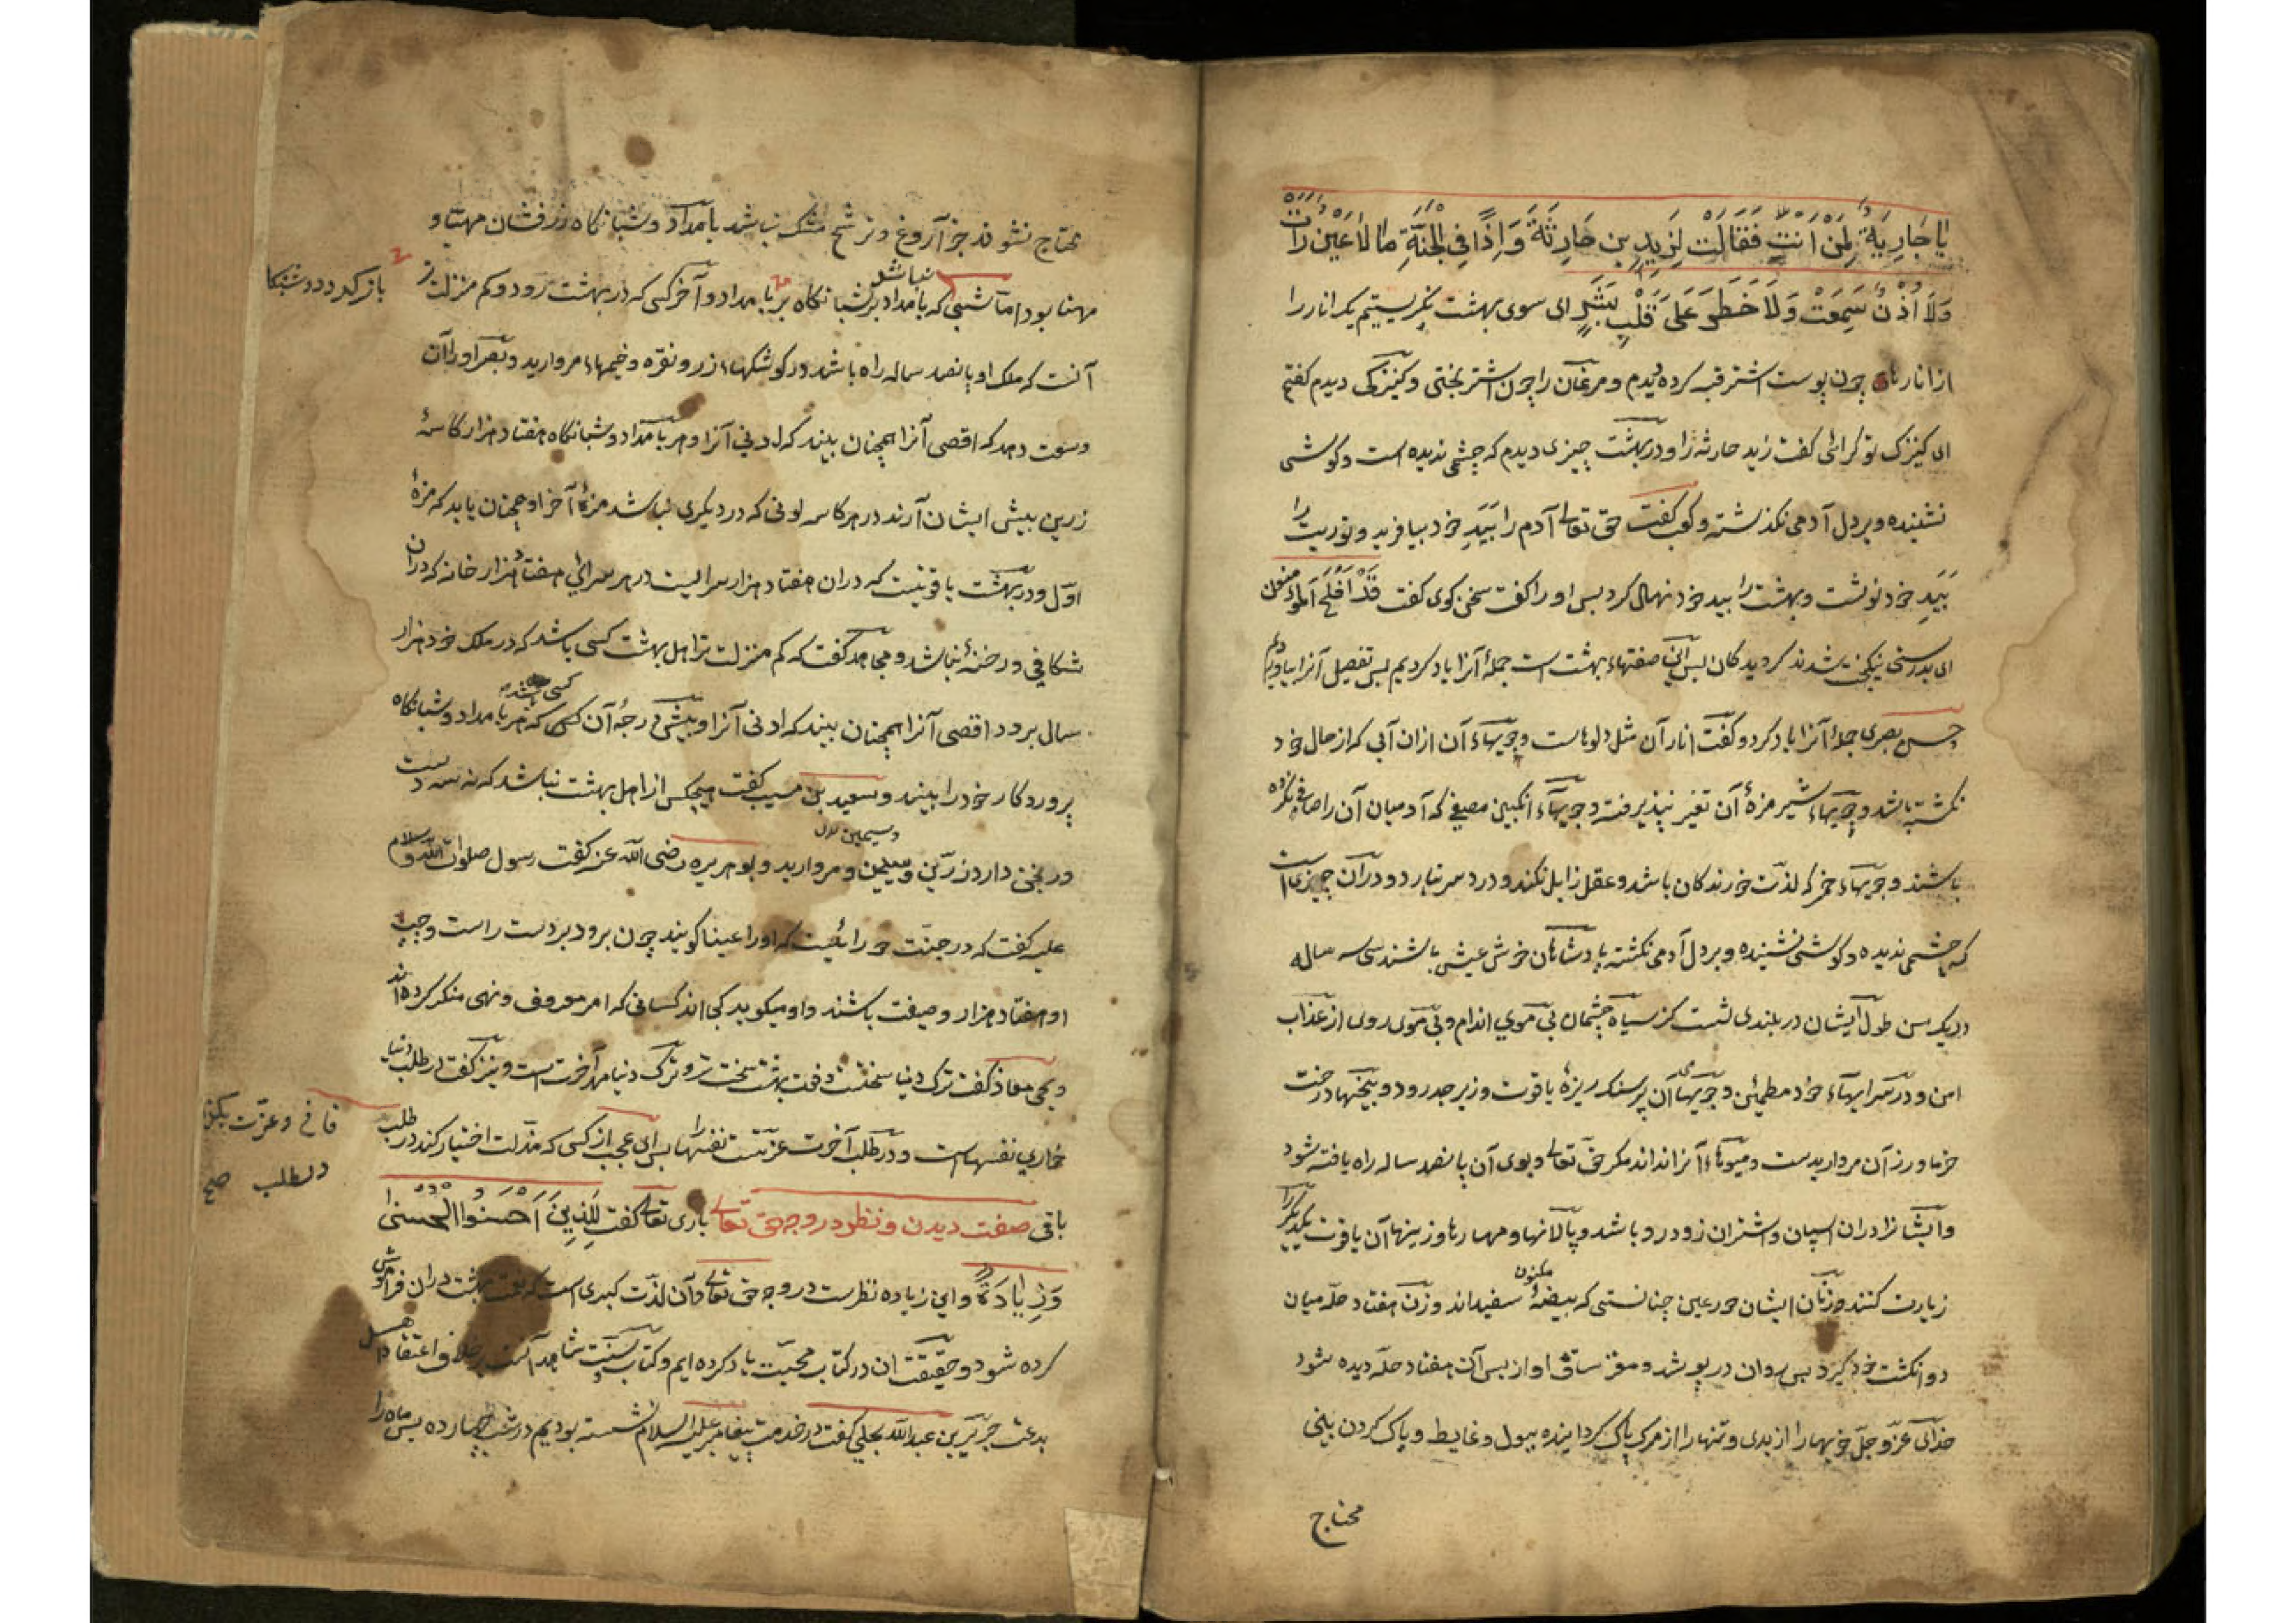 یا جَارِیَةُ لِمَنْ اَنْتِ فَقَالَتْ لِزَیدِ بن حَارِثَةَ وَاِذًا فِی الجَنَّةِ مالا عَیْن رَات
وَلَا اُذُنٌ سَمِعَتْ وَلَا خَطَرَ عَلَی قَلْبِ بَشَرٍ ای سوی بهشت نکریستیم یک انار را
از انارهای چون پوست اشتر قبه کرده دیدم و مرغان را چون اشتر بختی و کنیزکی دیدم کفتم
ای کنیزک تو کرائی کفت زید حارثه را و در بهشت چیزی دیدم که چشمی ندیده است و کوشی
نشنیده و بر دل آدمی نکذشته و کعب کفت حق تعالی آدم را بَیَدِ خود بیافرید و توریت را
بَیَدِ خود نوشت و بهشت را بید خود نهال کرد پس او را کفت سخن کوی کفت قَدْ اَفْلَحَ المؤمنون
ای بدرستی نیکبخت شدند کرویدکان پس این صفتهاء بهشت است جملهٔ آنرا یاد کردیم پس تفصیل آنرا بیاوریم
حسن بصری جملهٔ آنرا یاد کرد و کفت انار آن مثل دلوهاست و جویهاء آن ازان آبی که از حال خود
نکشته باشد و جویهاء شیر مزهٔ آن تغیر نپذیرفته و جویهاء انکبین مصفی که آدمیان آن را صافی نکرده
باشند و جویهاء خمر که لذّت خورندکان باشد و عقل زایل نکند و درد سر نیارد و در آن چیزهاست
که چشمی ندیده و کوشی نشنیده و بر دل آدمی نکشته پادشاهان خوش عیش باشند سی سه ساله
در یک سن طول ایشان در بلندی شصت کز سیاه چشمان بی موی اندام و بی موی روی از عذاب
امن و در سرایهاء خود مطمئن و جویهای آن بر سنک ریزهٔ یاقوت و زبرجد رود و بیخهاء درخت
خرما و رز آن مرواریدست و میوهاء آنرا نداند مکر حق تعالی و بوی آن پانصد ساله راه یافته شود
و ایشانرا دران اسپان و اشتران زود رو باشد و پالانها و مهارها و زینها آن یاقوت یکدیکر را
زیارت کنند و زنان ایشان حور عین چنانستی که بیضهٔ مکنون سفیداند و زن هفتاد حلّه میان
دو انکشت خود کیرد پس آن در پوشد و مغز ساق او از پس آن هفتاد حلّه دیده شود
خدای عزّوجلّ خویها را از بدی و تنها را از مرک پاک کردانیده ببول و غایط و پاک کردن بینی
محتاج
محتاج نشوند جز آروغ و ترشح مشک نباشد بامداد و شبانکاه رزقشان مهیّا و
مهنا بود اما شبی نباشد که بامداد بر شبانکاه بر بامداد و آخر کسی که در بهشت رود و کم منزلت تر
باز کردد و شبنکا
آنست که ملک او پانصد ساله راه باشد در کوشکهاء زر و نقره و خیمهاء مروارید و بصر او را آن
وسعت دهد که اقصی آنرا همچنان بیند که ادنی آنرا و هر بامداد و شبانکاه هفتاد هزار کاسهٔ
زرین پیش ایشان آرند در هر کاسه لونی که در دیکری نباشد مزهٔ آخر او همچنان یابد که مزهٔ
اوّل و در بهشت یاقوتیست که دران هفتاد هزار سرا لیست در هر سرائی هفتاد هزار خانه که دران
شکافی و رخنهٔ نباشد و مجاهد کفت که کم منزلت تر اهل بهشت کسی باشد که در ملک خود هزار
سال برود اقصی آنرا همچنان بیند که ادنی آنرا و بیشی درجهٔ آن کسی که هر بامداد و شبانکاه
پروردکار خود را بیند و سعید بن مسیب کفت هیچکس از اهل بهشت نباشد که نه سه دست
ورنجن دارد زرّین و سیمین و مروارید و بو هریره رضی الله عنه کفت رسول صلوات الله و سلام
علیه کفت که در جنّت حورائیست که او را عینا کویند چون برود بر دست راست و چپ
او هفتاد هزار وصیفت باشند و او میکوید کجااند کسانی که امر معروف و نهی منکر کرده اند
و یحیی معاذ کفت ترک دنیا سختست و فوت بهشت سخت تر و ترک دنیا مهر آخرت است و نیز کفت در طلب دنیا
خواری نفسهاست و در طلب آخرت عزتست نفسها را پس ای عجب از کسی که مذلت اختیار کند در طلب
فانی و عزّت بکذ
در طلب صح
باقی صفت دیدن و نظر در وجه حق تعالی باری تعالی کفت لِلَّذِینَ اَحْسَنُوا الْحُسْنیٰ
وَزِیَادَةٌ و این زیاده نظرست در وجه حق تعالی و آن لذّت کبری است که نعمت بهشت دران فراموش
کرده شود و حقیقت ان در کتاب محبّت یاد کرده ایم و کتاب و سنّت شاهد آنست بر خلاف اعتقاد اهل
بدعت جریر بن عبدالله بجلی کفت در خدمت پیغامبر علیه السلام نشسته بودیم در شب چهارده پس ماه را